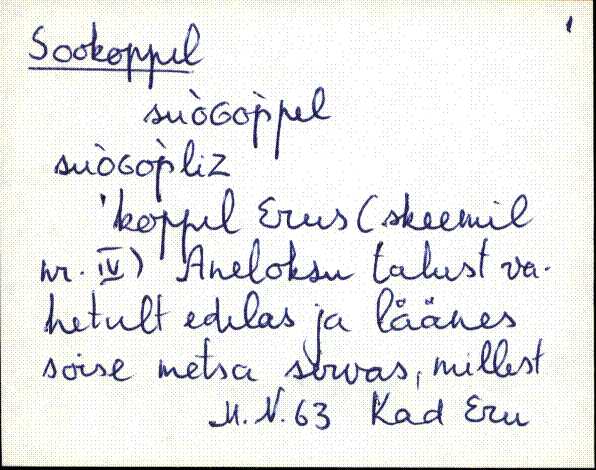 Sookoppel
suòɢòppel
suòɢòpliz
'koppel Erus (skeemil
nr. IV) Aneloksu talust va-
hetult edelas ja läänes
soise metsa servas, millest
M.N. 63 Kad Eru